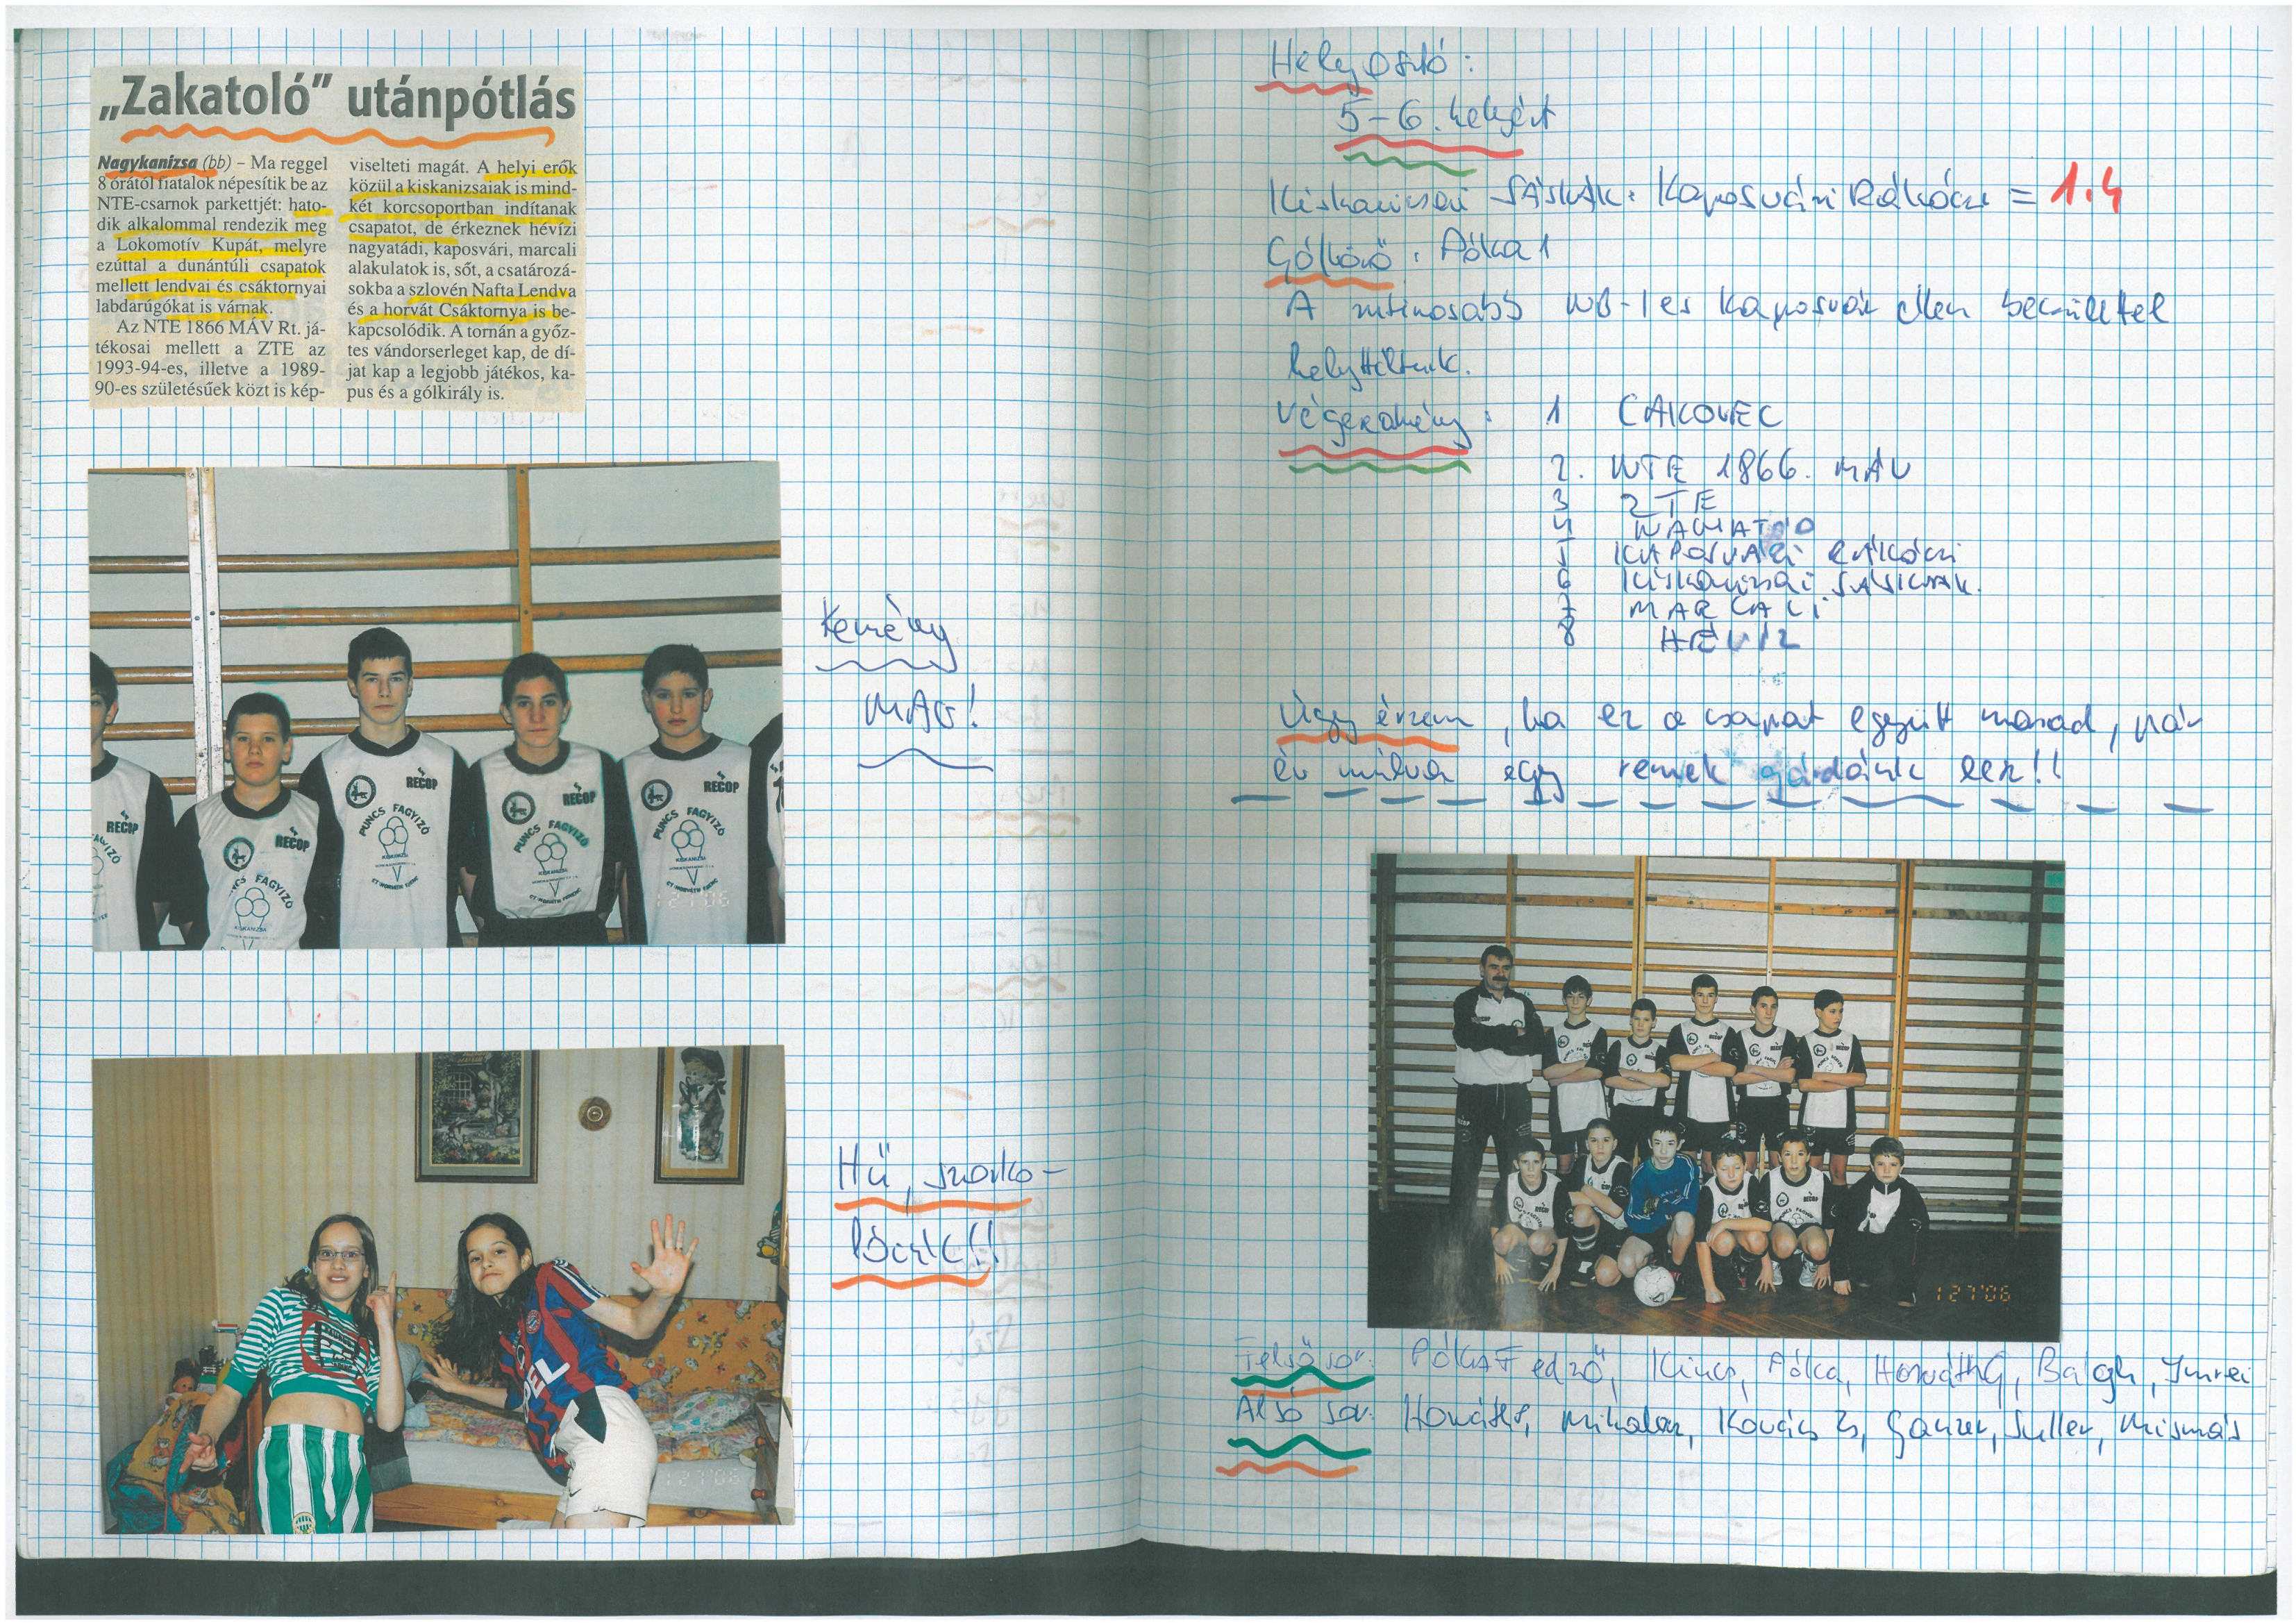 „Zakatoló” utánpótlás
Nagykanizsa (bb) – Ma reggel
8 órától fiatalok népesítik be az
NTE-csarnok parkettjét: hato-
dik alkalommal rendezik meg
a Lokomotív Kupát, melyre
ezúttal a dunántúli csapatok
mellett lendvai és csáktornyai
labdarúgókat is várnak.
Az NTE 1866 MÁV Rt. já-
tékosai mellett a ZTE az
1993-94-es, illetve a 1989-
90-es születésűek közt is kép-
viselteti magát. A helyi erők
közül a kiskanizsaiak is mind-
két korcsoportban indítanak
csapatot, de érkeznek hévízi
nagyatádi, kaposvári, marcali
alakulatok is, sőt, a csatározá-
sokba a szlovén Nafta Lendva
és a horvát Csáktornya is be-
kapcsolódik. A tornán a győz-
tes vándorserleget kap, de dí-
jat kap a legjobb játékos, ka-
pus és a gólkirály is.
RECOP
RECOP
RECOP
RECOP
RECOP
PUNCS FAGYIZÓ
KISKANIZSA
PUNCS FAGYIZÓ
KISKANIZSA
PUNCS FAGYIZÓ
KISKANIZSA
1 27'06
Kemény
MAG!
Hű, szurko-
lóink!!
1 27'06
Helyosztó:
5-6. helyért
Kiskanizsai SÁSKÁK: Kaposvári Rákóczi = 1:4
Góllövő: Pólka 1
A rutinosabb NB-1 es Kaposvár ellen becsülettel
helytálltunk.
Végeredmény: 1 CAKOVEC
2. NTE 1866. MÁV
3 ZTE
4 NAGYATÁD
5 KAPOSVÁRI RÁKÓCZI
6 Kiskanizsai SÁSKÁK.
7 MARCALI
8 HÉVÍZ
Úgy érzem, ha ez a csapat együtt marad, pár
év múlva egy remek gárdánk lesz!!
1 27'06
Felső sor: Pólka F edző, Kincs, Pólka, Horváth G, Balogh, Imrei
Alsó sor: Horváth, Mihalecz, Kovács Zs, Ganzer, Suller, Mismás